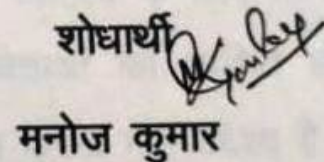 शोधार्थी
मनोज कुमार